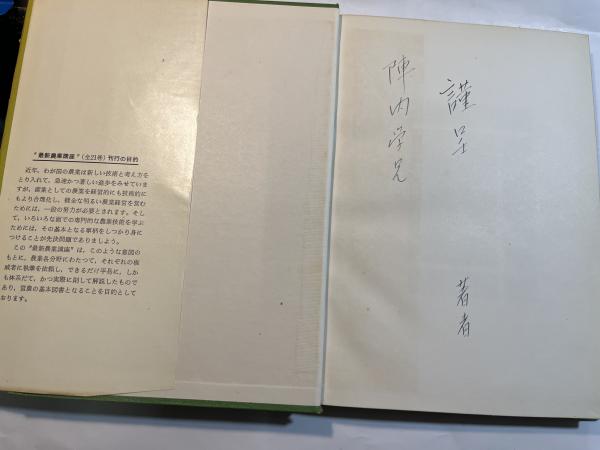 "最新農業講座"(全21巻)刊行の目的
近年、わが国の農業は新しい技術と考え方を
とり入れて、急速かつ著しい進歩をみせていま
すが、産業としての農業を経営的にも技術的に
もより合理化し、健全な明るい農業経営を営む
ためには、一段の努力が必要とされます。そし
て、いろいろな面での専門的な農業技術を学ぶ
ためには、その基本となる事柄をしっかり身に
つけることが先決問題でありましょう。
この"最新農業講座"は、このような意図の
もとに、農業各分野にわたって、それぞれの権
威者に執筆を依頼し、できるだけ平易に、しか
も体系だて、かつ実際に則して解説したもので
あり、営農の基本図書となることを目的として
おります。
謹呈
陣内学兄
著者